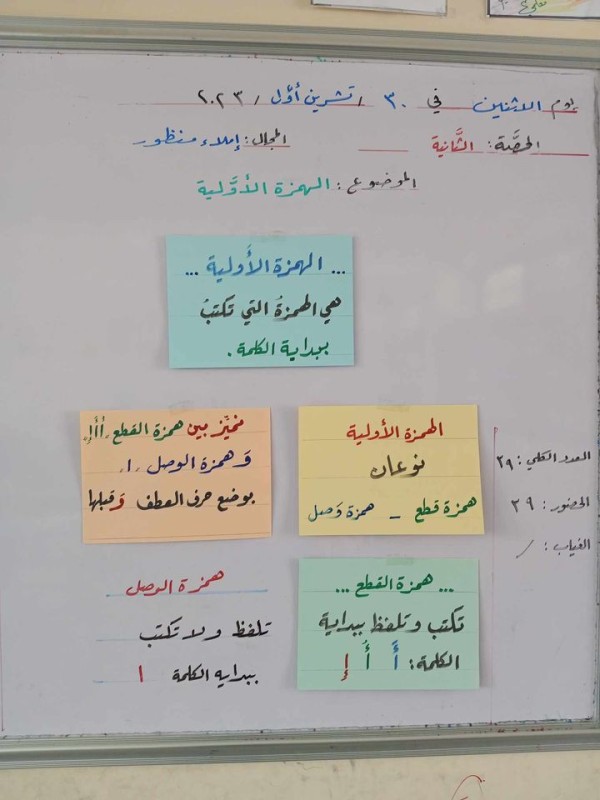 يوم الاثنين في ٣٠ / تشرين أوَّل / ٢٠٢٣
الحصَّة: الثَّانية
المجال: إملاء منظور
الموضوع: الهمزة الأوَّلية
... الهمزة الأَولية ...
هي الهمزةُ التي تكتبُ
ببداية الكلمة.
الهمزة الأولية
نوعان
همزة قطع - همزة وَصل
نميِّز بين همزة القطع "أُأَإ"
وَ همزة الوصل "ا"
بوضع حرف العطف وَ قبلها
العدد الكلي: ٢٩
الحضور: ٢٩
الغياب: /
... همزة القطع ...
تكتب وتلفظ ببداية
الكلمة: أَ أُ إ
همزة الوصل
تلفظ ولا تكتب
ببدايه الكلمة ا